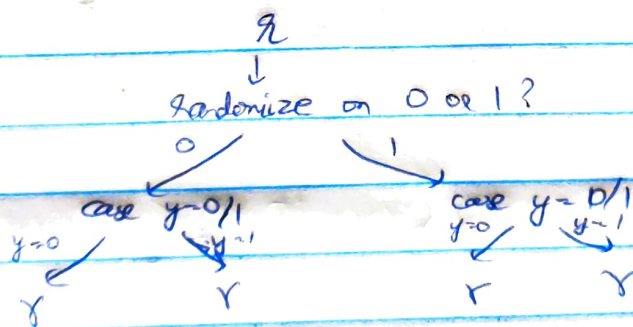 r
randomize on 0 or 1?
0 1
case y=0/1 case y=0/1
y=0 y=1 y=0 y=1
r r r r